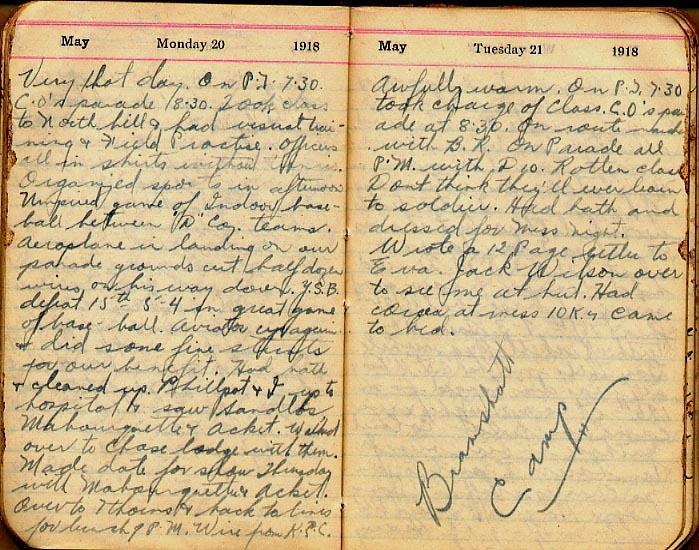 May Monday 20 1918
Very hot day. On P.T. 7.30.
C.O's parade 8:30. Took class
to North hill & had visual trai-
ning & Field Practise. Officers
all in shirts without tunics.
Organized sports in afternoon
Umpired game of Indoor base-
ball between "A" Coy. teams.
Aeroplane in landing on our
parade grounds cut half dozen
wires on his way down. Y.S.B.
defeat 15th 5-4 in great game
of base-ball. Aviator up again
& did some fine stunts
for our benefit. Had bath
& cleaned up. Phillpot & I up to
hospital & saw
& Acket. Walked
over to Chase lodge with them.
Made date for show Thursday
with & Acket.
Over to & back to lines
for lunch 9 P.M. Wire from
May Tuesday 21 1918
Awfully warm. On P.T. 7.30
took charge of Class. C.O's par-
ade at 8:30. On route march
with B.R. On Parade all
P.M. with Rotten class
Dont think they'll ever learn
to soldier. Had bath and
dressed for Mess night.
Wrote a 12 Page letter to
Eva. Jack Wilson over
to see me at hut. Had
cocoa at mess 10 K. & came
to bed.
Bramshott
Camp